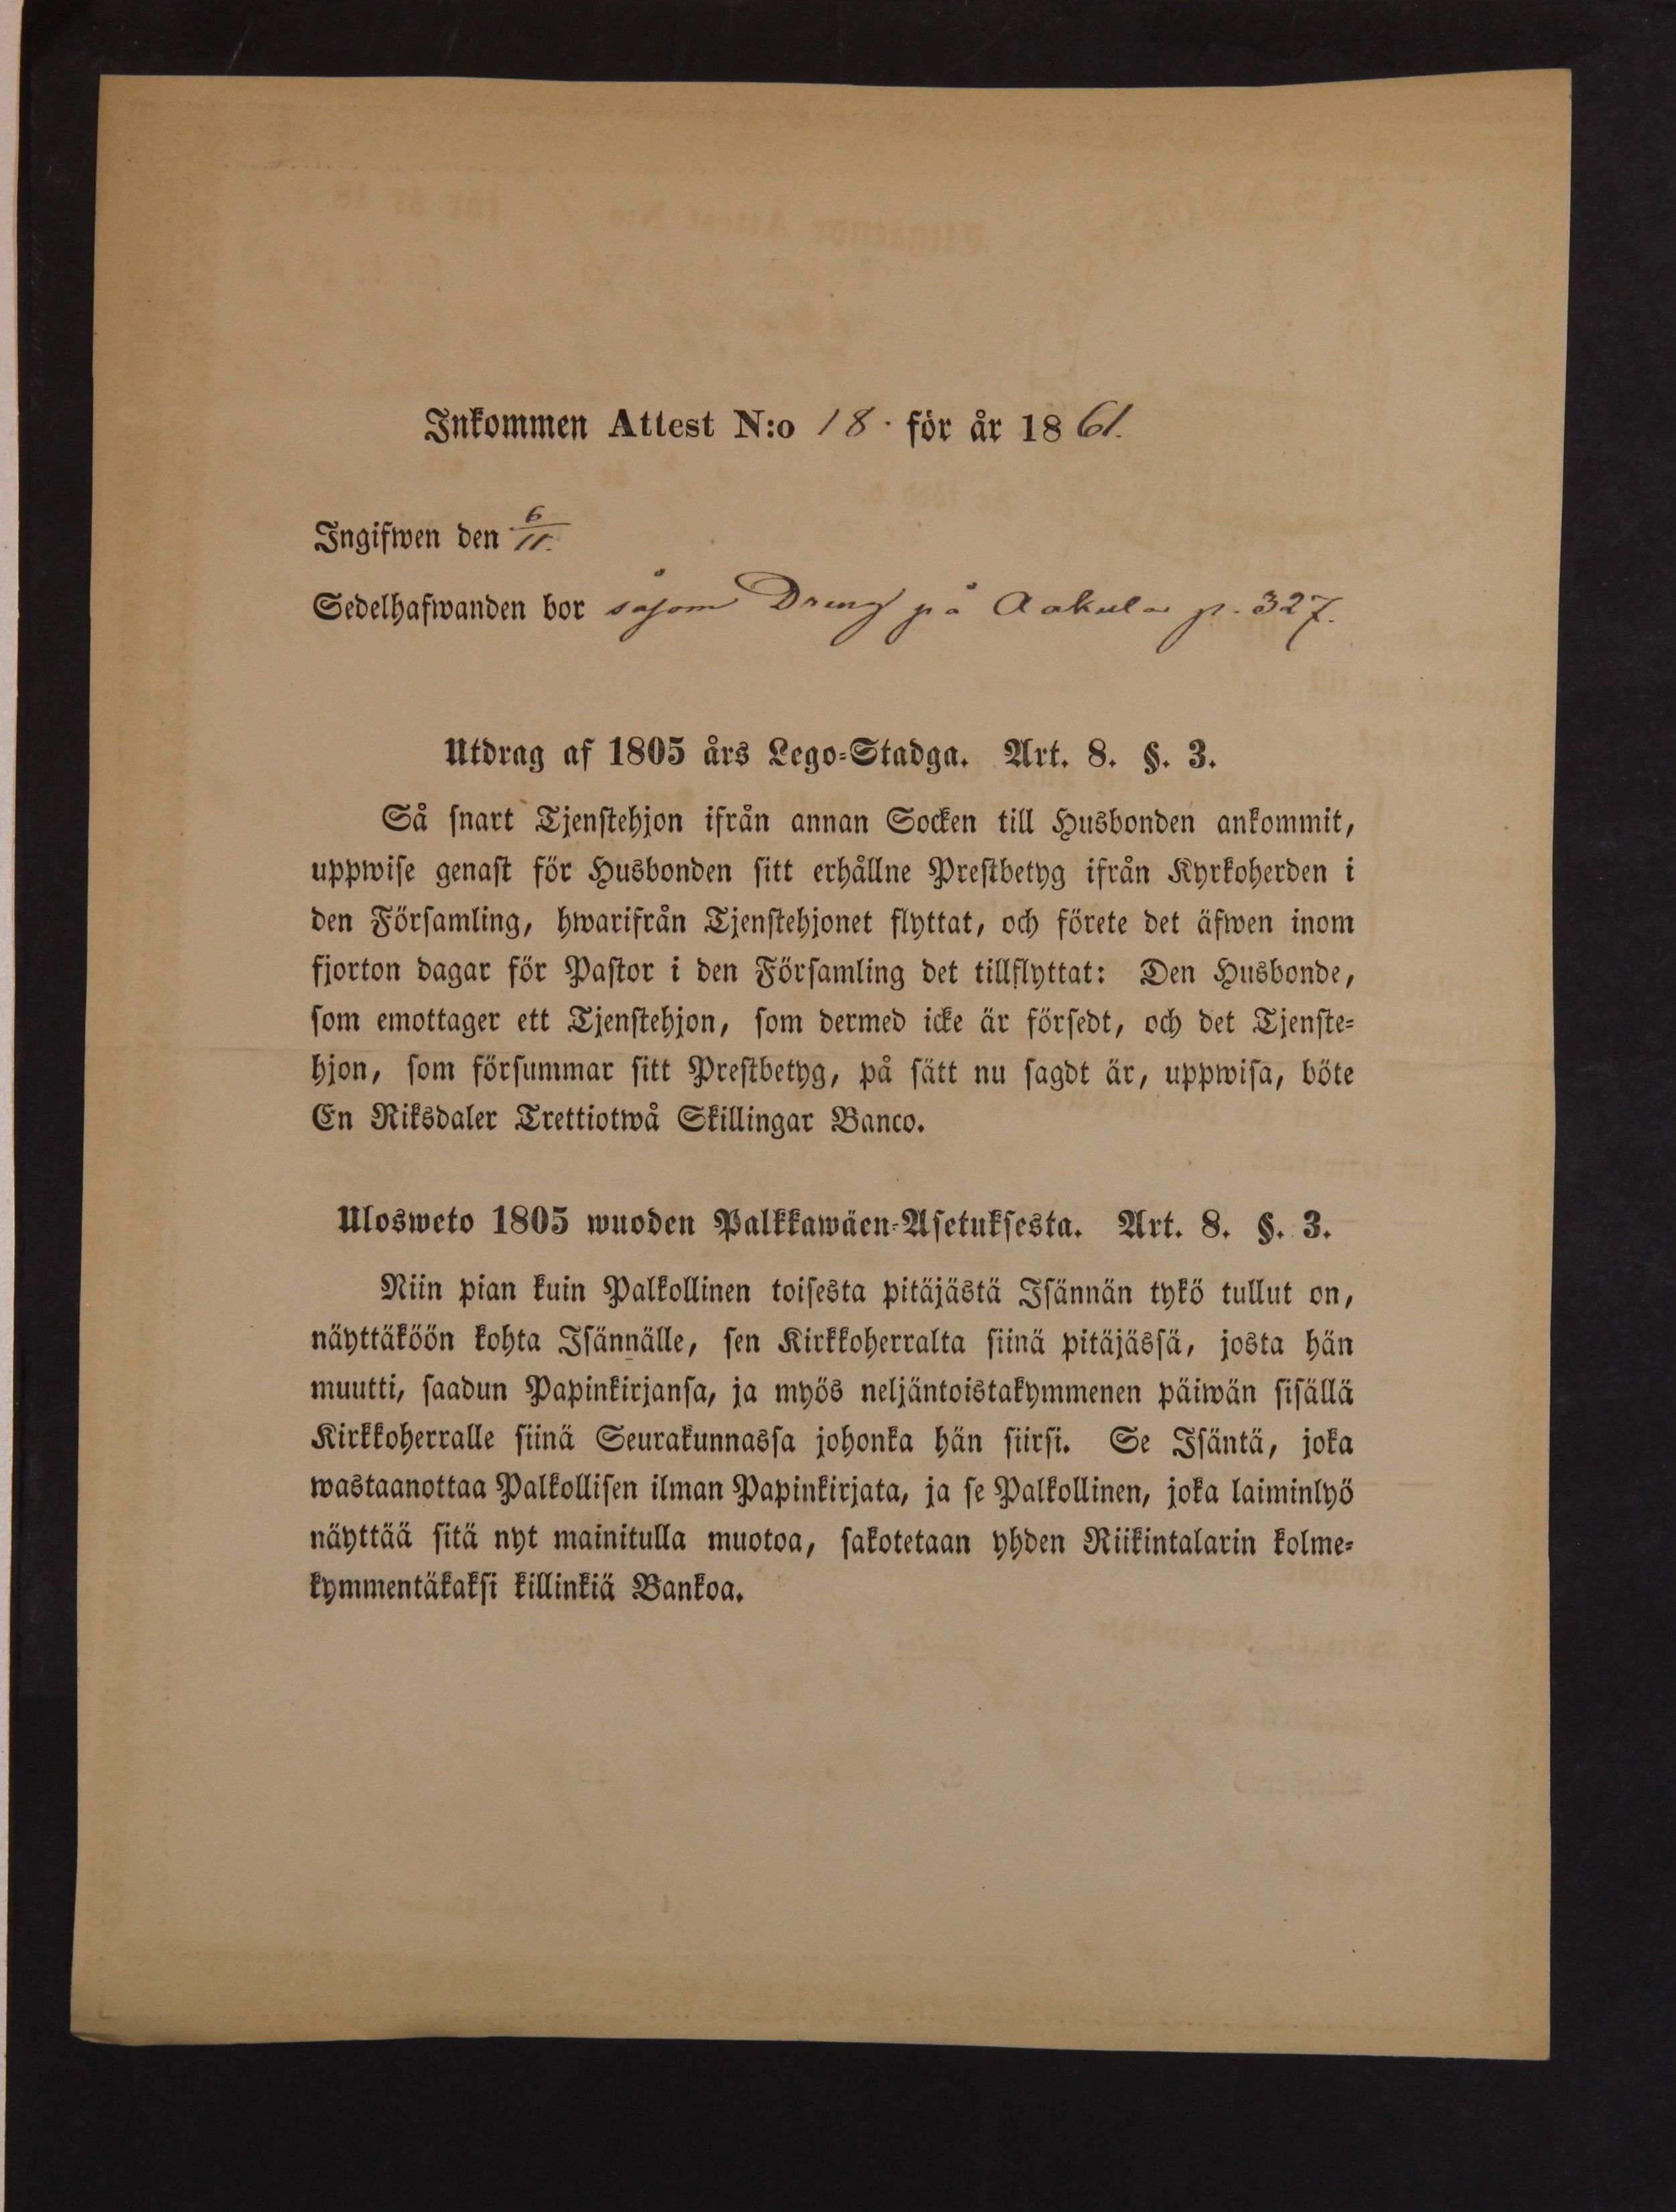 Inkommen Attest N:o 18. för år 1861.
Ingifwen den 6/11.
Sedelhafwanden bor såsom Dreng på Aakula p. 327.
Utdrag af 1805 års Lego-Stadga. Art. 8. §. 3.
Så snart Tjenstehjon ifrån annan Socken till Husbonden ankommit,
uppwise genast för Husbonden sitt erhållne Prestbetyg ifrån Kyrkoherden i
den Församling, hwarifrån Tjenstehjonet flyttat, och förete det äfwen inom
fjorton dagar för Pastor i den Församling det tillflyttat: Den Husbonde,
som emottager ett Tjenstehjon, som dermed icke är försedt, och det Tjenste-
hjon, som försummar sitt Prestbetyg, på sätt nu sagdt är, uppwisa, böte
En Riksdaler Trettiotwå Skillingar Banco.
Ulosweto 1805 wuoden Palkkawäen-Asetuksesta. Art. 8. §. 3.
Niin pian kuin Palkollinen toisesta pitäjästä Isännän tykö tullut on,
näyttäköön kohta Isännälle, sen Kirkkoherralta siinä pitäjässä, josta hän
muutti, saadun Papinkirjansa, ja myös neljäntoistakymmenen päiwän sisällä
Kirkkoherralle siinä Seurakunnassa johonka hän siirsi. Se Isäntä, joka
wastaanottaa Palkollisen ilman Papinkirjata, ja se Palkollinen, joka laiminlyö
näyttää sitä nyt mainitulla muotoa, sakotetaan yhden Riikintalarin kolme-
kymmentäkaksi killinkiä Bankoa.